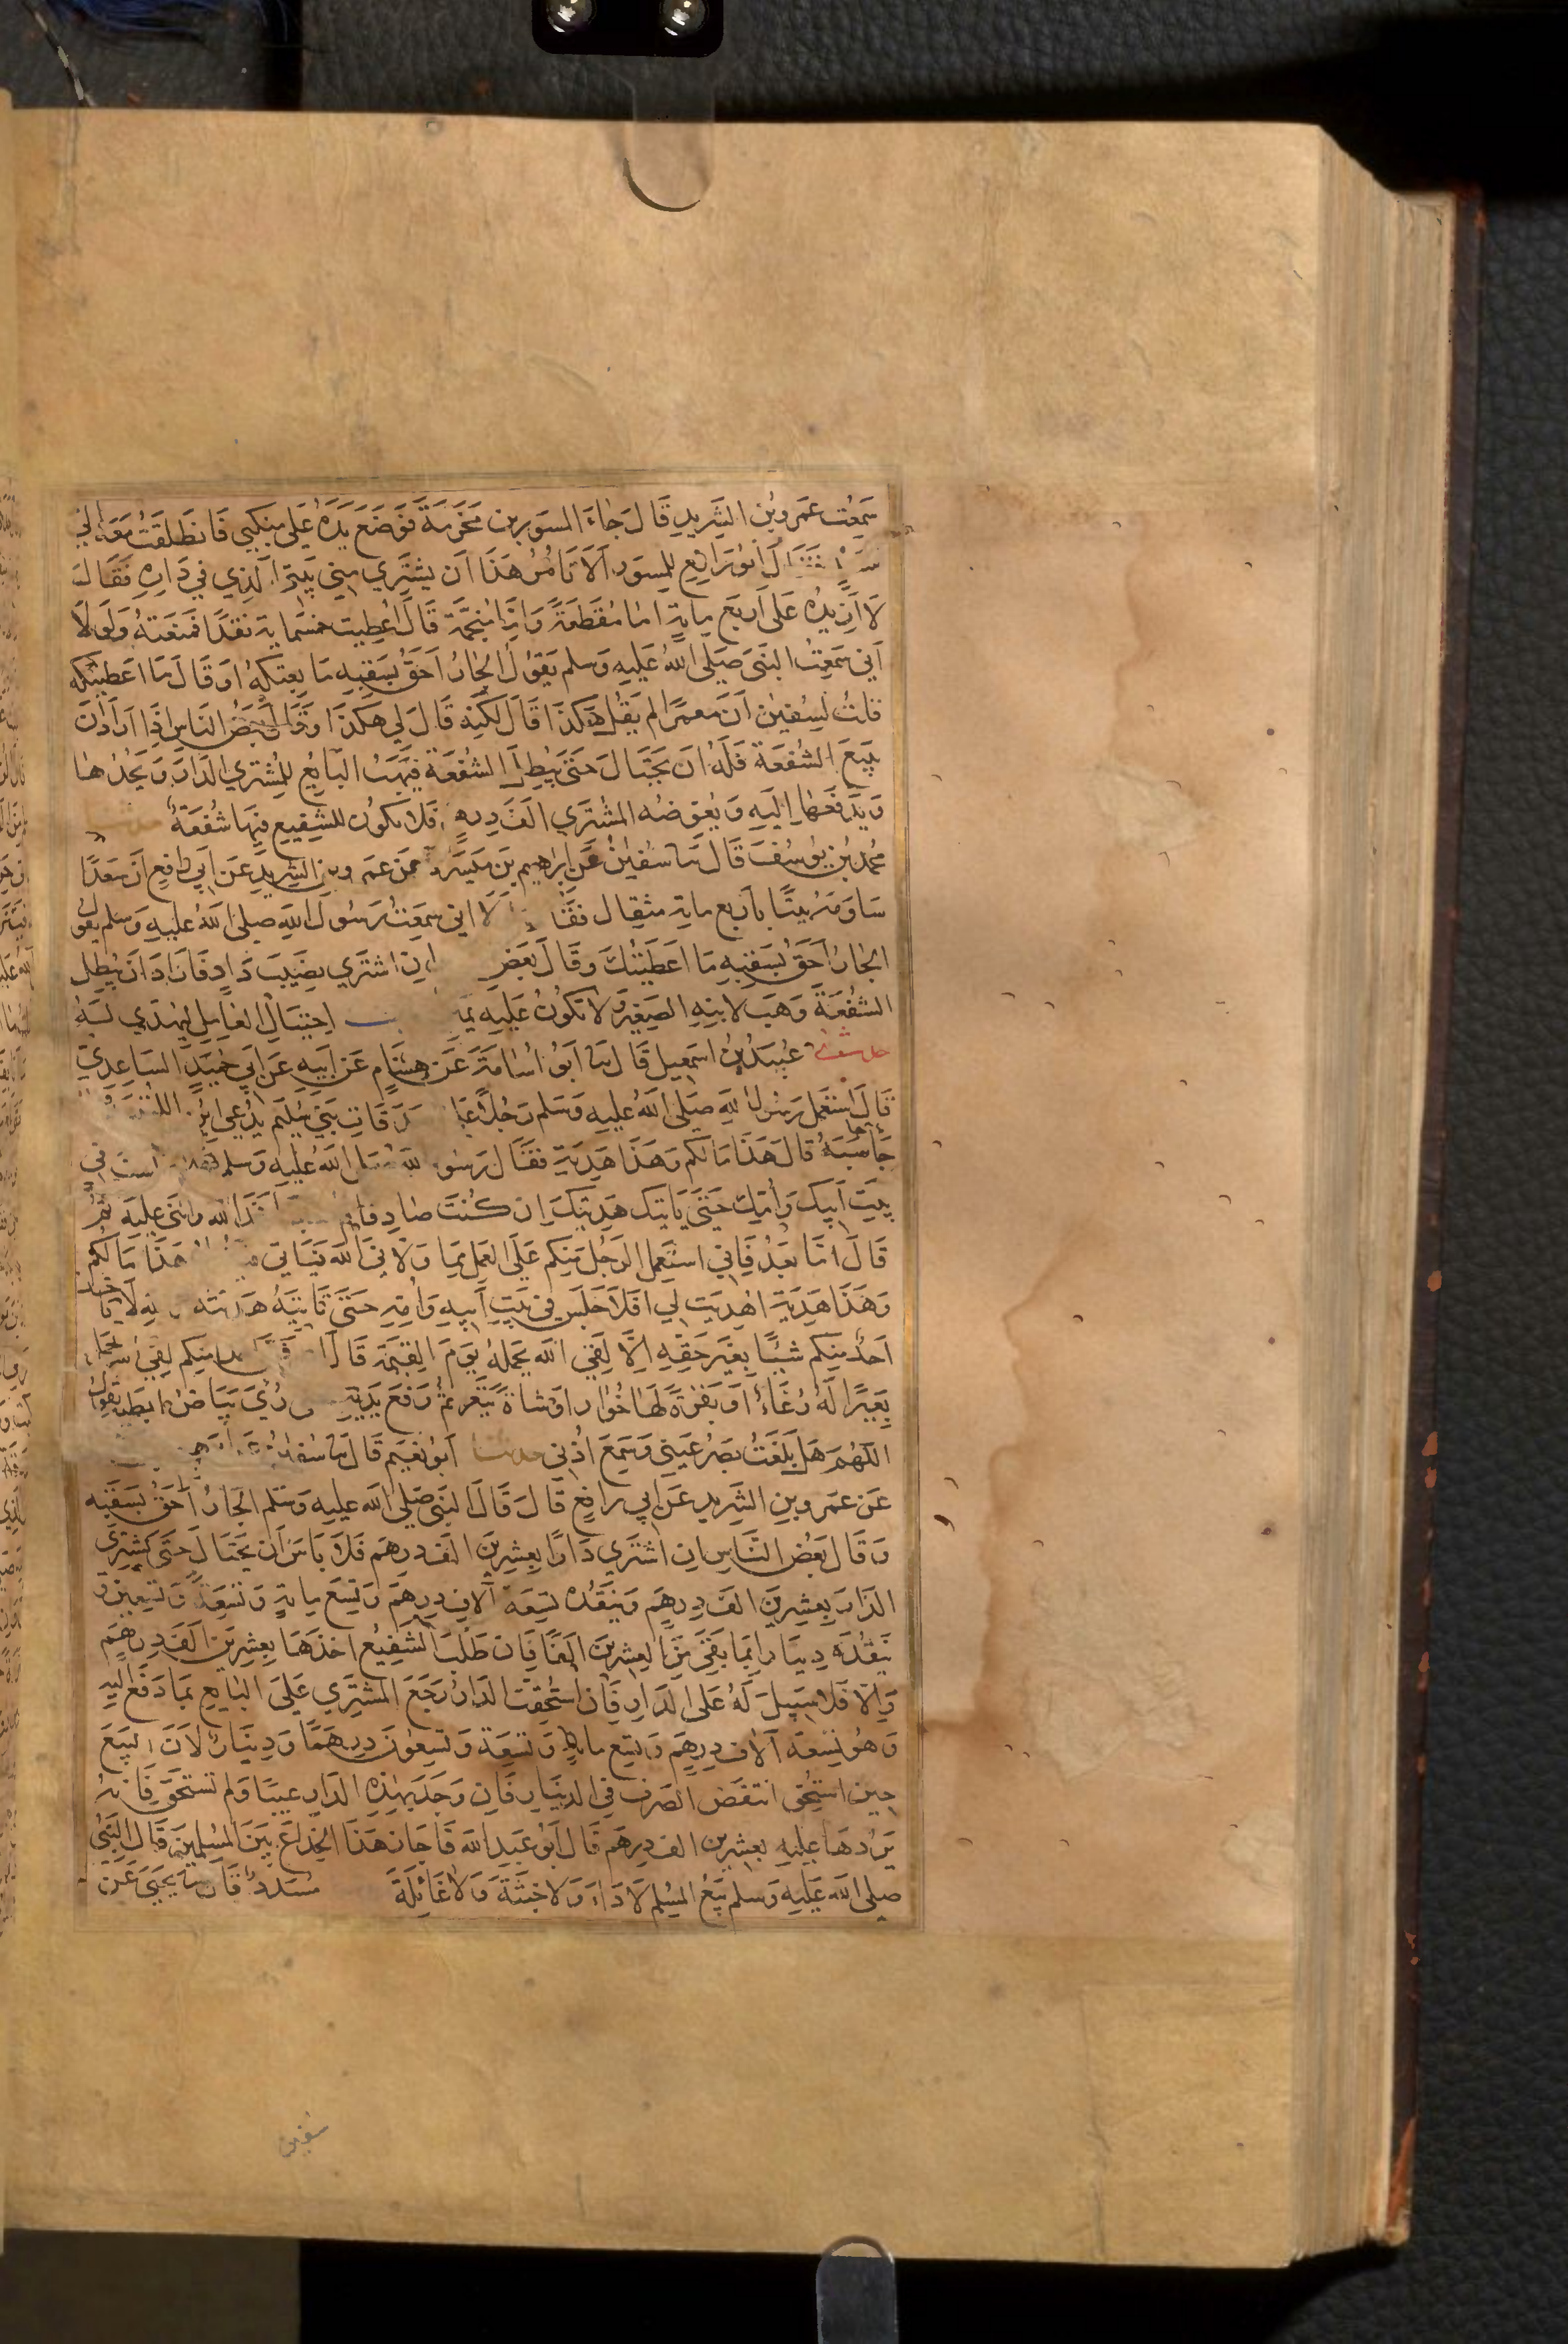 سَمِعْت عَمرو بن الشَّريدِ قَالَ جَاءَ المسوَر بن مَخْرَمَةَ فَوَضَعَ يَدَهُ عَلى مِنكَبي فَانطَلَقتُ مَعَهُ الي
ابُو رَافِعٍ لِلمِسوَر اَلاَ تَامُرُ هَذَا اَن يَشتَرِي مِنّي بَيتيَ الَّذِي في دَارِه فَقَالَ
لاَ اَزِيدُهُ عَلى اَربَع مِايَةٍ امَا مُقَطَعَةً وَامَّا مُنَجَّمَةً قَالَ اُعْطِيت خمسَماية نَقدًا فَمَنَعتهُ وَلَولاَ
اَني سَمِعتُ النَبيَّ صَلى اللهُ عَليهِ وَسلم يَقوُلُ الجَارُ اَحَقُّ بسَقبِهِ مَا بِعتكهُ اوَ قَالَ مَا اعَطَيتكه
قلتُ لِسُفين اَنَ مَعمرًا لم يَقُل هَكَذَا قَالَ لَكِنه قَالَ لي هَكَذا وَقَالَ بَعضُ النَاسِ اِذَا اَرَادَ اَن
يبيَعَ الشُفعَة فَلَهُ ان يَحتَالَ حَتى يُبطِلَ الشفعَة فيَهَبُ البَايعُ لِلمُشتَرِي الدَارَ وَيَحُدُّهَا
وَيَدفَعهَا اِليَهِ وَيُعَوضُه المشتَري الَفَ دِرهَم فَلا يكوُن للشفِيعِ فيهَا شُفعَةٌ
مُحمَد بْن يوُسُفَ قَالَ ثَنا سُفينُ عَن اِبرَاهيم بن مَيسَرَة عَن عَمرو بن الشَريدِ عَن اَبي رَافِع اَنَ سَعدًا
سَاوَمَهُ بَيتًا بأربَع ماية مثقال فقَالَ لَولاَ اني سَمِعتُ رَسُولَ اللهِ صلى اللهُ عَليهِ وَسلم يَقوُل
الجَارُ احَقُّ بسَقبِهِ مَا اعَطيتُكَ وقَالَ بَعَضُ اِن اشتَري نصَيبَ دَارٍ فَارَادَ اَن يُبطِل
الشفُعَةَ وَهَبَ لابنِهِ الصَغِير وَلاَ تكوُنُ عَليهِ يَمِين اِحتيَالِ العَامِلِ ليُهدَي لهُ
حدثنا عُبَيدُ بْن اسمَعِيل قَالَ ثنا اَبوُ اُسَامَةَ عَن هِشَام عَن اَبيهِ عَن اَبي حُمَيد السَاعِدي
قَالَ استَعمل رَسُولُ اللهِ صَلى اللهُ عَليهِ وَسَلم رَجُلاً عَلى صَدَقَاتِ بَني سُلَيم يُدعَى ابنُ اللتبية
جَا حَاسَبَهُ قَالَ هَذَا مَالكم وَهَذَا هَدِيَة فَقَالَ رَسُولُ اللهِ صَلى اللهُ عَليهِ وَسلم في
بيتِ اَبيكَ وَامِك حَتىَ يَاتيَك هَدِيتكَ اِن كُنتَ صَادِقا اللهَ وَاثنى عَليه ثمُ
قَالَ امَّا بعَدُ فَاني استَعمِل الرَجُلَ مِنكم عَلَى العَمل مِمَا وَلاّني الله فَيَاتي هَذَا مَالكُم
وَهَذَا هَدِيَة اهدِيَت لي افَلا جَلَس في بَيتِ اَبيهِ وَاُمّهِ حَتىَ تَاتِيَهُ هَدِيته وَاللهِ لاَ يَاخذ
احَدٌ مِنكم شَيئًا بِغَير حَقِّهِ اِلاّ لقيَ الله يَحمله يَومَ القِيمَة فَلاَ احدا مِنكم لقِيَ الله يحمل
بَعِيرًا لَهُ رُغَاءٌ اَو بقَرَةً لهَا خُوَار اوَ شَاةً تَيعَر ثمُ رَفعَ يَدَيهِ رُئيَ بَيَاضُ ابطيه يَقوُل
اللهُم هَل بَلَغتُ بصَرُ عَيني وَسَمعَ اذُني حدثنا ابوُ نعَيم قَالَ ثَنا سُفيان
عَن عَمرو بن الشَريد عَن اَبي رافعٍ قَالَ قَالَ النَبي صَلى الله عليهِ وَسَلم الجَارُ احَقُّ بسَقبِه
وَقَالَ بعَضُ النَّاسِ انِ اشتَري دَارًا بعِشِرينَ الف دِرهَم فَلا بَاسَ اَن يَحتَالَ حَتى يَشتَري
الدَارَ بِعِشرينَ الفَ دِرهَم وَيَنقُدُه تِسعَة آلافِ دِرهَمٍ وَتِسَعَ مايةٍ وَتسعَةً وَتسِعينَ وَ
يَنقُدَه دِينَارًا بمَا بَقيَ مِنَ العِشرينَ الفًا فَان طَلَبَ الشَفيعُ اخذَهَا بعِشرينَ الفَ دِرهَم
وَاِلاّ فَلا سَبيلَ لَهُ عَلى الدَارِ فَانِ استُحِقّت الدَارُ رَجَعَ المشتَري عَلىَ البَايع بمَا دَفع اليهِ
وَهُوَ تِسعَة آلافِ دِرهَم وَتسِع ماية وَتسعَة وَتسعُونَ دِرهَمًا وَدِينَار لاَنَّ البيَعَ
حِينَ استُحِق انتَقَضَ الصَرف في الدِينَارِ فَانِ وَجَدَ بهذِهِ الدَارِ عَيبًا وَلم تستحَقّ فَانهُ
يَرُدهَا عَليهِ بعِشرين الف دِرهَم قَالَ ابَوُ عَبدِ اللهِ فَاجَازَ هَذَا الخِدَاعَ بَينَ المُسلمينَ قَالَ النَبيُّ
صلى الله عَليهِ وَسلم بَيعُ المُسِلم لاَ دَاءَ وَلا خبثَة وَلاَ غَائِلَةَ مُسَدّدٌ قَالَ ثنا يَحيىَ عَن
سفين